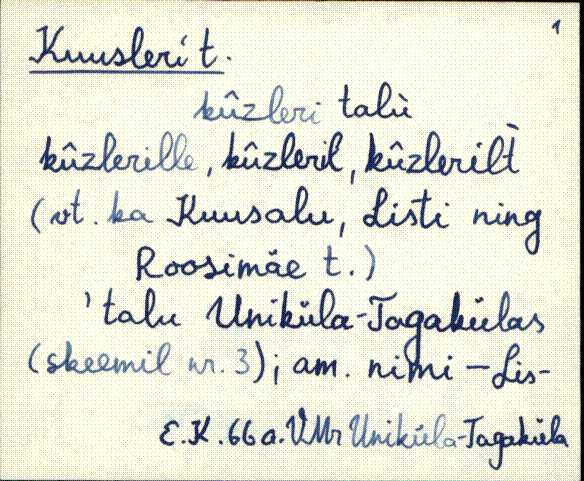 1
Kuusleri t.
kûzleri talù
kûzlerille, kûzleril, kûzlerilt̀
(vt. ka Kuusalu, Listi ning
Roosimäe t.)
'talu Uniküla-Tagakülas
(skeemil nr. 3); am. nimi – Lis-
E.K. 66 a. VMr Uniküla-Tagaküla